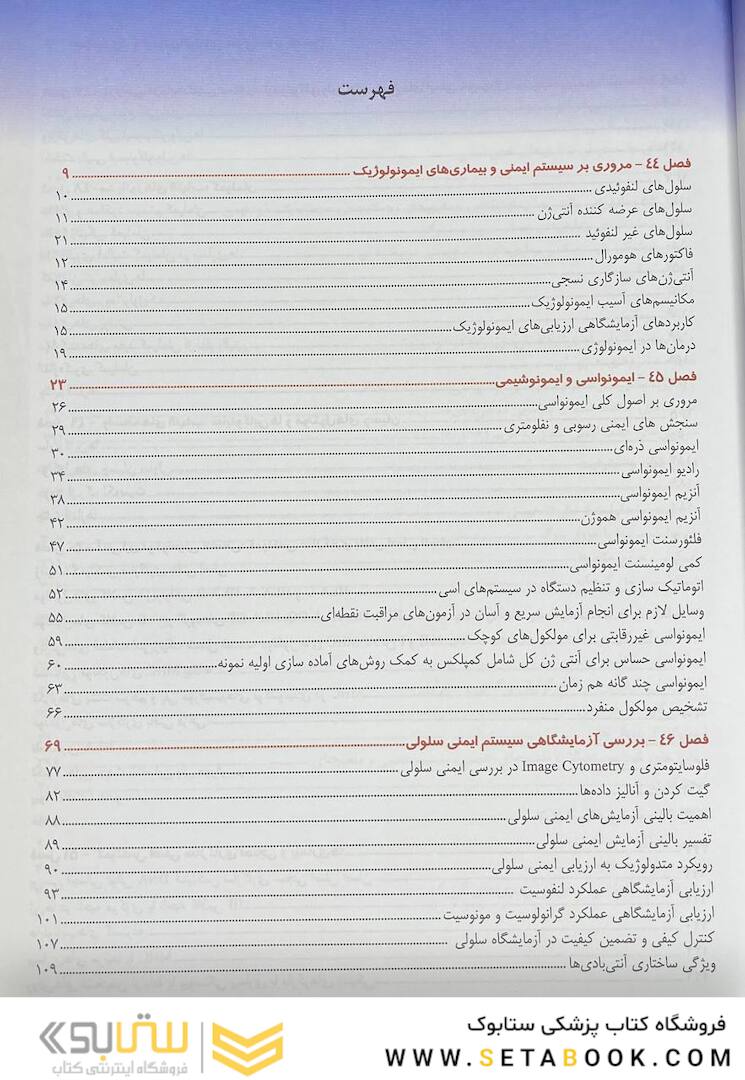 فهرست
فصل ۴۴ - مروری بر سیستم ایمنی و بیماری‌های ایمونولوژیک ۹
سلول‌های لنفوئیدی ۱۰
سلول‌های عرضه کننده آنتی‌ژن ۱۱
سلول‌های غیر لنفوئید ۲۱
فاکتورهای هومورال ۱۲
آنتی‌ژن‌های سازگاری نسجی ۱۴
مکانیسم‌های آسیب ایمونولوژیک ۱۵
کاربردهای آزمایشگاهی ارزیابی‌های ایمونولوژیک ۱۵
درمان‌ها در ایمونولوژی ۱۹
فصل ۴۵ - ایمونواسی و ایمونوشیمی ۲۳
مروری بر اصول کلی ایمونواسی ۲۶
سنجش های ایمنی رسوبی و نفلومتری ۲۹
ایمونواسی ذره‌ای ۳۰
رادیو ایمونواسی ۳۴
آنزیم ایمونواسی ۳۸
آنزیم ایمونواسی هموژن ۴۲
فلئورسنت ایمونواسی ۴۷
کمی لومینسنت ایمونواسی ۵۱
اتوماتیک سازی و تنظیم دستگاه در سیستم‌های اسی ۵۲
وسایل لازم برای انجام آزمایش سریع و آسان در آزمون‌های مراقبت نقطه‌ای ۵۵
ایمونواسی غیررقابتی برای مولکول‌های کوچک ۵۹
ایمونواسی حساس برای آنتی ژن کل شامل کمپلکس به کمک روش‌های آماده سازی اولیه نمونه ۶۰
ایمونواسی چند گانه هم زمان ۶۳
تشخیص مولکول منفرد ۶۶
فصل ۴۶ - بررسی آزمایشگاهی سیستم ایمنی سلولی ۶۹
فلوسایتومتری و Image Cytometry در بررسی ایمنی سلولی ۷۷
گیت کردن و آنالیز داده‌ها ۸۲
اهمیت بالینی آزمایش‌های ایمنی سلولی ۸۸
تفسیر بالینی آزمایش ایمنی سلولی ۸۹
رویکرد متدولوژیک به ارزیابی ایمنی سلولی ۹۰
ارزیابی آزمایشگاهی عملکرد لنفوسیت ۹۳
ارزیابی آزمایشگاهی عملکرد گرانولوسیت و مونوسیت ۱۰۱
کنترل کیفی و تضمین کیفیت در آزمایشگاه سلولی ۱۰۷
ویژگی ساختاری آنتی‌بادی‌ها ۱۰۹
فروشگاه کتاب پزشکی ستابوک
WWW.SETABOOK.COM
ستابوک
فروشگاه اینترنتی کتاب